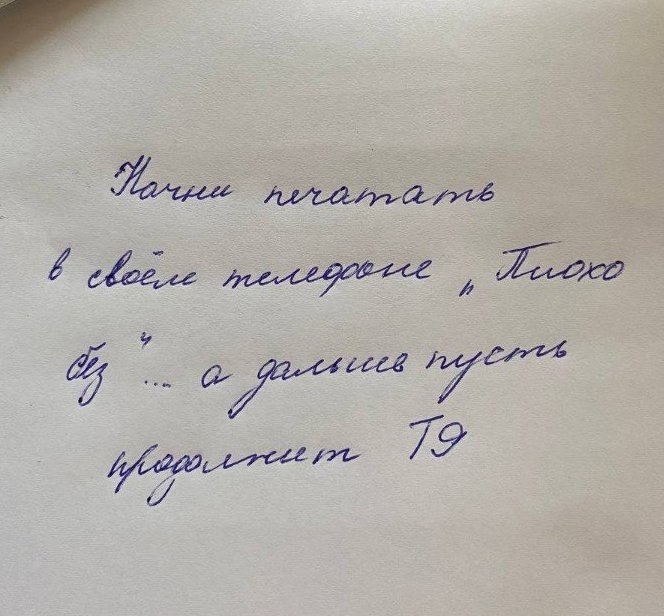 Начни печатать
в своём телефоне „Плохо
без“... а дальше пусть
продолжит Т9